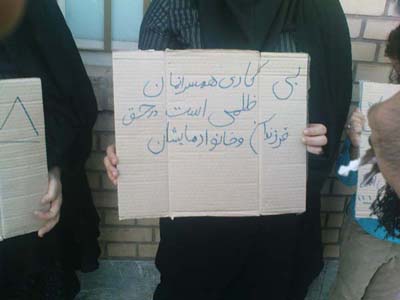 بی کاری همسرانمان
ظلمی است در حق
فرزندان و خانواده‌مایشان